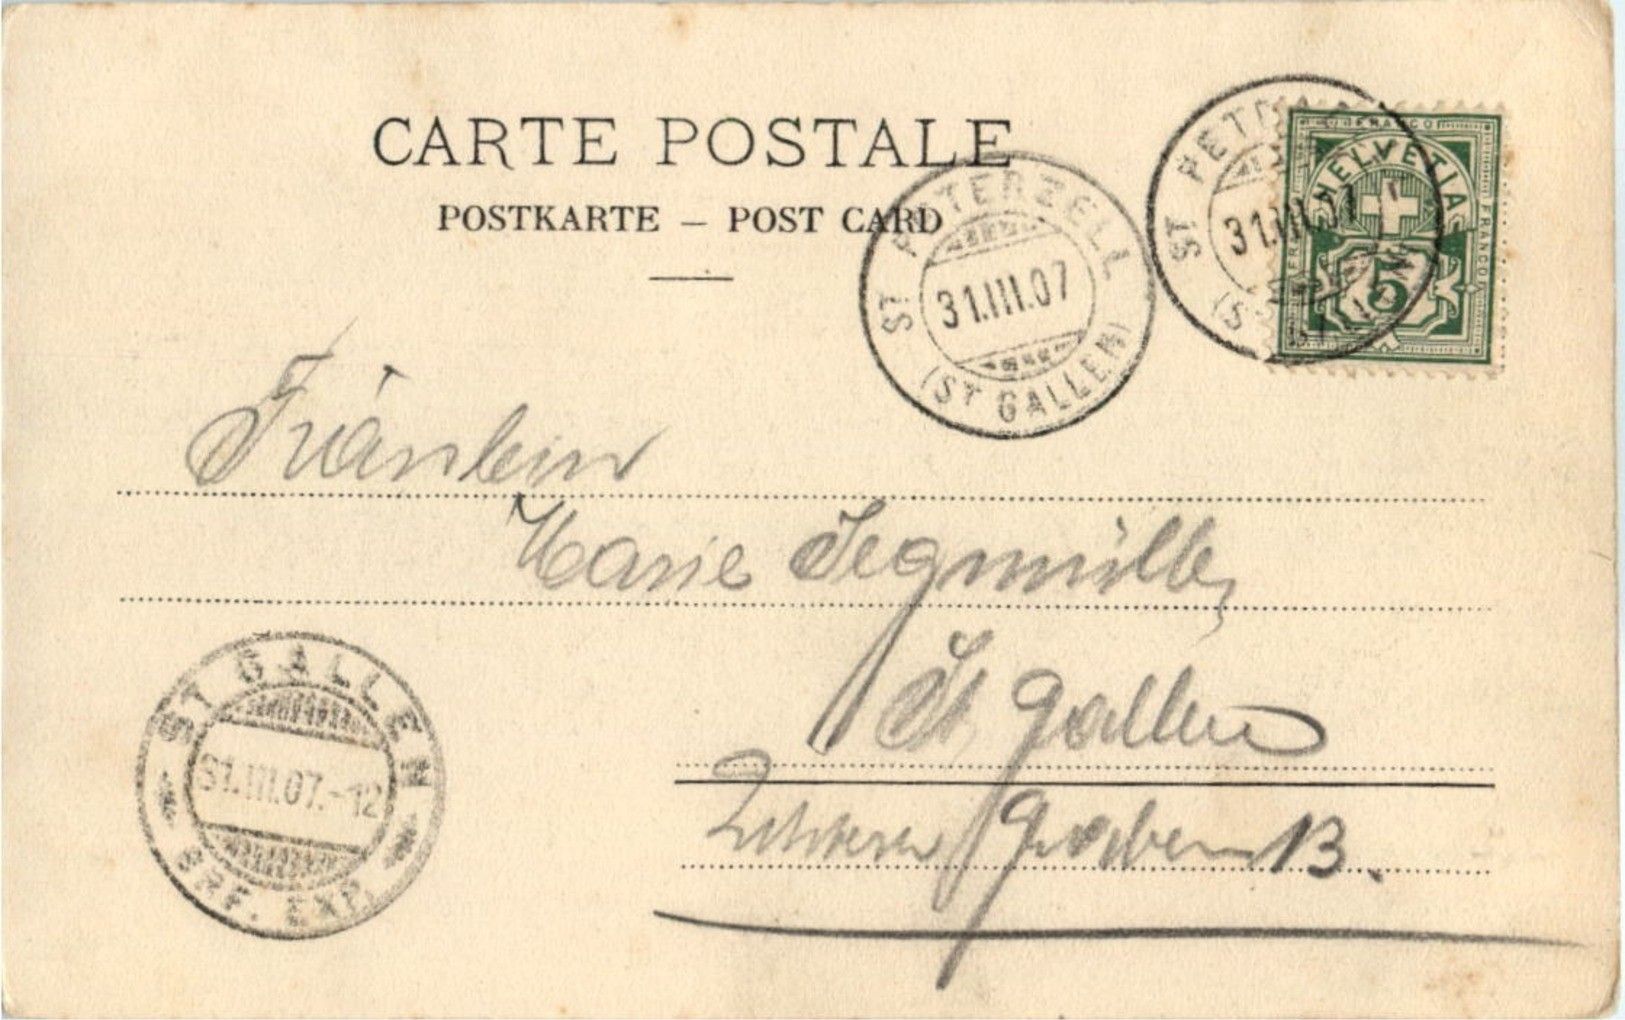 CARTE POSTALE
POSTKARTE – POST CARD
ST PETERZELL
31.III.07
(ST GALLEN)
ST PETE
31.III.07
FRANCO
HELVETIA
FRANCO
5
Fräulein
Marie Segmüller
St Gallen
graben 13.
ST GALLEN
31.III.07.-12
BRF. EXP.